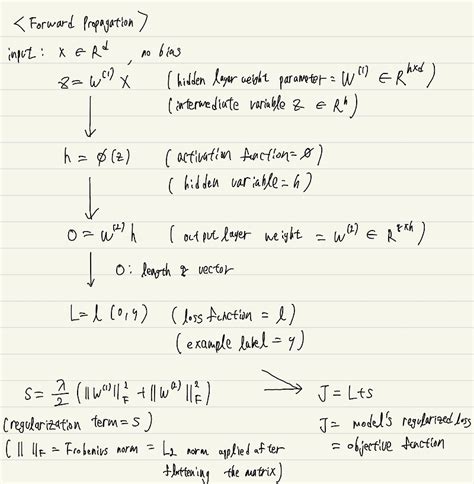 < Forward Propagation >
input : x ∈ R^d , no bias
z = W^(1) x ( hidden layer weight parameter = W^(1) ∈ R^(h×d) )
( intermediate variable z ∈ R^h )
h = ϕ(z) ( activation function = ϕ )
( hidden variable = h )
O = W^(2) h ( output layer weight = W^(2) ∈ R^(q×h) )
O : length q vector
L = l (o, y) ( loss function = l )
( example label = y )
S = λ/2 ( ||W^(1)||²_F + ||W^(2)||²_F ) J = L+s
( regularization term = s ) J = model's regularized loss
( || ||_F = Frobenius norm = L2 norm applied after = objective function
flattening the matrix )